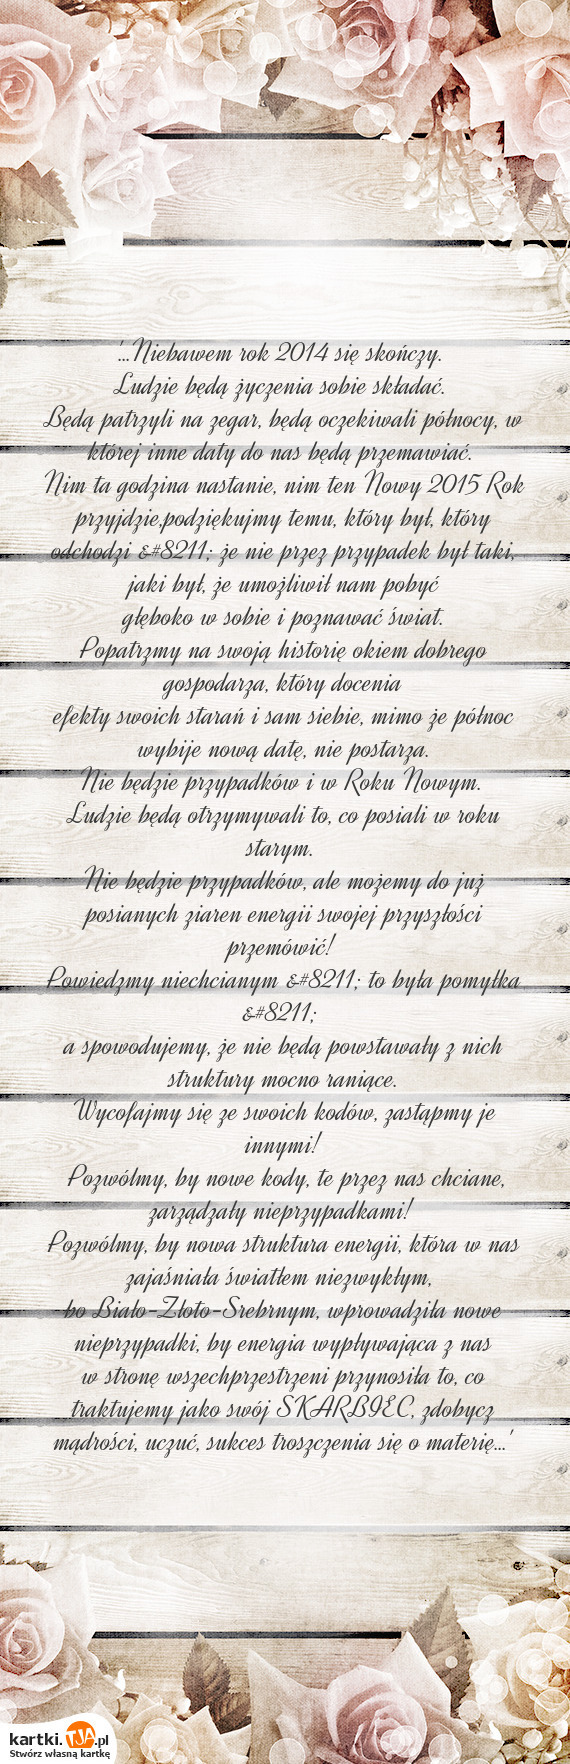 '...Niebawem rok 2014 się skończy.
Ludzie będą życzenia sobie składać.
Będą patrzyli na zegar, będą oczekiwali północy, w
której inne daty do nas będą przemawiać.
Nim ta godzina nastanie, nim ten Nowy 2015 Rok
przyjdzie,podziękujmy temu, który był, który
odchodzi &#8211; że nie przez przypadek był taki,
jaki był, że umożliwił nam pobyć
głęboko w sobie i poznawać świat.
Popatrzmy na swoją historię okiem dobrego
gospodarza, który docenia
efekty swoich starań i sam siebie, mimo że północ
wybije nową datę, nie postarza.
Nie będzie przypadków i w Roku Nowym.
Ludzie będą otrzymywali to, co posiali w roku
starym.
Nie będzie przypadków, ale możemy do już
posianych ziaren energii swojej przyszłości
przemówić!
Powiedzmy niechcianym &#8211; to była pomyłka
&#8211;
a spowodujemy, że nie będą powstawały z nich
struktury mocno raniące.
Wycofajmy się ze swoich kodów, zastąpmy je
innymi!
Pozwólmy, by nowe kody, te przez nas chciane,
zarządzały nieprzypadkami!
Pozwólmy, by nowa struktura energii, która w nas
zajaśniała światłem niezwykłym,
bo Biało-Złoto-Srebrnym, wprowadziła nowe
nieprzypadki, by energia wypływająca z nas
w stronę wszechprzestrzeni przynosiła to, co
traktujemy jako swój SKARBIEC, zdobycz
mądrości, uczuć, sukces troszczenia się o materię...'
kartki.TJA.pl
Stwórz własną kartkę